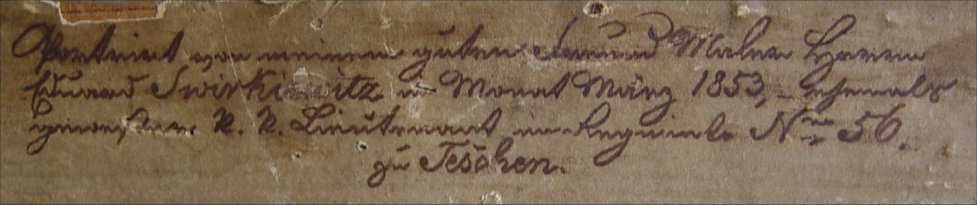 Portrait von meinem guten Freund Maler Herrn
Eduard Swirkiewitz im Monat März 1853, – ehemals
gewester K. K. Lieutenant im Regimente Nro 56.
zu Teschen.